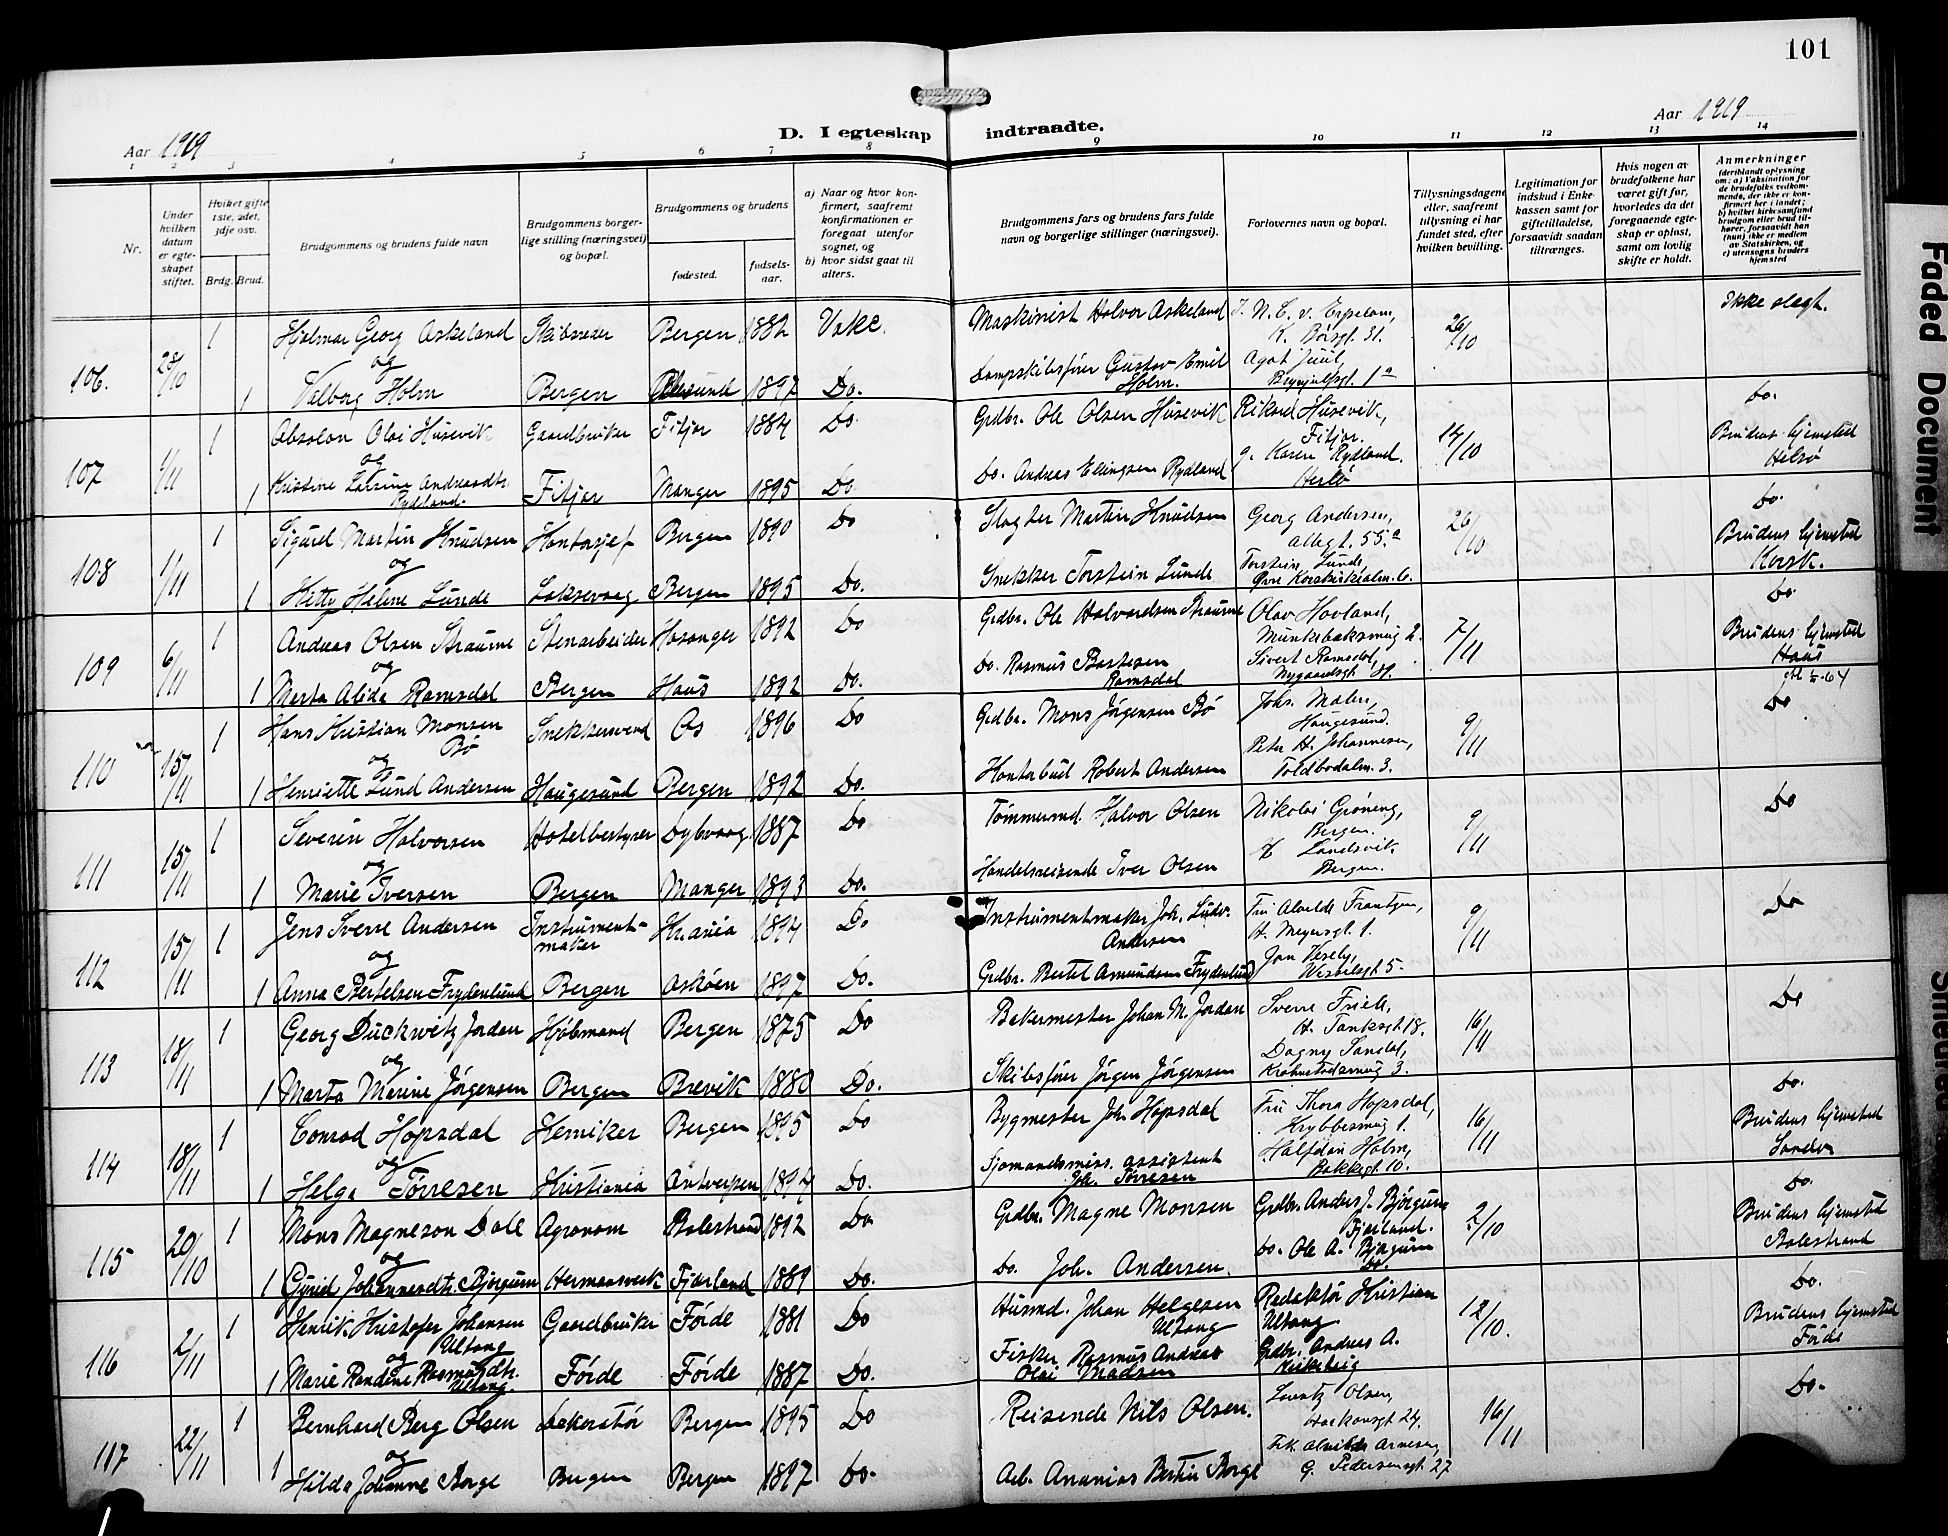 101
Aar 1919
D. I egteskap indtraadte.
Aar 1919
1 2 3 4 5 6 7 8 9 10 11 12 13 14
Nr.
Under hvilken datum er egteskapet stiftet.
Hvilket gifte 1ste, 2det, 3dje osv.
Brdg. Brud.
Brudgommens og brudens fulde navn
Brudgommens borgerlige stilling (næringsvei) og bopæl.
Brudgommens og brudens
fødested.
fødselsaar.
a) Naar og hvor konfirmert, saafremt konfirmationen er foregaat utenfor sognet, og
b) hvor sidst gaat til alters.
Brudgommens fars og brudens fars fulde navn og borgerlige stillinger (næringsvei).
Forlovernes navn og bopæl.
Tillysningsdagene eller, saafremt tillysning ei har fundet sted, efter hvilken bevilling.
Legitimation for indskud i Enkekassen samt for giftetilladelse, forsaavidt saadan tiltrænges.
Hvis nogen av brudefolkene har været gift før, hvorledes da det foregaaende egteskap er opløst, samt om lovlig skifte er holdt.
Anmerkninger (deriblandt oplysning om: a) Vaksination for de brudefolks vedkommende, der ikke er konfirmert her i landet; b) hvilket kirkesamfund brudgom eller brud tilhører, forsaavidt han (hun) ikke er medlem av Statskirken, og c) utensogns bruders hjemsted
106. 28/10 1 Hjalmar Georg Askeland Skibsreder Bergen 1882 Vake. Maskinist Halvor Askeland J. N. C. v. Erpecom, K. Børsgt. 31. 26/10 Ikke slagt.
og
1 Valborg Holm Bergen 1897 Do. Dampskibsfører Gustav Emil Holm. Agot Juul,
107 1/11 1 Absalon Olai Husevik Gaardbruker Fitjar 1884 Do. Grdbr. Ole Olsen Husevik Rikard Husevik, Fitjar. 14/10 Do. Brudens hjemsted
og
1 Kristine Larsine Andreasdtr. Rydland. Fitjar Manger 1895 Do. Do. Andreas Elingsen Rydland g. Karen Rydland. Herlø
108 1/11 1 Sigurd Martin Knudsen Kontorsjef Bergen 1890 Do Slagter Martin Knudsen Georg Andersen, allegt. 55.a 26/10 Do. Brudens hjemsted Korsk.
og
1 Kitty Helene Lunde Laksevaag Bergen 1895 Do. Snekker Torstein Lunde Torstein Lunde, Øvre Korskirkealm. 6.
109 6/11 1 Andreas Olsen Straume Stenarbeider Hosanger 1892 Do Grdbr. Ole Halvardsen Straume Olav Hovland, Munkebæksmug 2. 7/11 Do. Brudens hjemsted Haus
og
1 Marta Alida Ramsdal Bergen Haus 1892 Do. Do. Rasmus Bastesen Ramsdal Sivert Ramsdal, Nygaardsgt
110 15/11 1 Hans Kristian Monsen Bø Snekkersvend Os 1896 Do Grdbr. Mons Jørgensen Bø Johs. Malen, Haugesund. 9/11 Do
og
1 Henriette Lund Andersen Haugesund Bergen 1892 Do. Kontorbud Robert Andersen Peter H. Johannesen, Toldbodalm. 3.
111 15/11 1 Severin Halvorsen Hotelbestyrer Dybvaag 1887 Do Tømmermd. Halvor Olsen Nikolai Grøning, Bergen. 9/11 Do
og
1 Marie Iversen Bergen Manger 1893 Do. Handelsreisende Iver Olsen Landsvik Bergen.
112 15/11 1 Jens Sverre Andersen Instrumentmaker Kr.ania 1894 Do Instrumentmaker Joh. Ludv. Andersen Fru Alvilde Frantzen, H. Meyersgt 1. 9/11 Do
og
1 Anna Bertelsen Frydenlund Bergen Askøen 1897 Do. Grdbr. Bertel Amundsen Frydenlund Jan Vesely, Wesselsgt 5.
113 18/11 1 Georg Duckwitz Jordan Kjøbmand Bergen 1875 Do Bakermester Johan M. Jordan Sverre Friele, H. Tanksgt 18. 16/11 Do
og
1 Marta Marine Jørgensen Bergen Brevik 1880 Do. Skibsfører Jørgen Jørgensen Dagny Sandal, 3.
114 18/11 1 Conrad Hopsdal Kemiker Bergen 1895 Do Bygmester Joh. Hopsdal Fru Thora Hopsdal, Krybbesmug 1. 16/11 Do. Brudens hjemsted
og
1 Helga Tørresen Kristiania Antwerpen 1894 Do. Sjømandsmis. assistent Joh. Tørresen Halfdan Holm, Bakkegt. 10.
115 20/10 1 Mons Magneson Dale Agronom Balestrand 1892 Do. Grdbr. Magne Monsen Grdbr. Anders J. Bjørgum Fjærland. Do. Brudens hjemsted Balestrand
og
1 Gyrid Johannesdtr. Bjørgum Hermansverk Fjærland 1889 Do. Do. Joh. Andersen. Do. Ole A. Bjørgum Do.
116 2/11 1 Henrik Kristofer Johansen Ultang Gaardbruker Førde 1881 Do Husmd. Johan Helgesen Ultang Redaktør Kristian Ultang 12/10. Do. Brudens hjemsted Førde
og
1 Marie Randine Rasmusdtr. Ultang. Førde Førde 1887 Do. Fisker Rasmus Andreas Olai Madsen Grdbr. Andreas A.
117 22/11 1 Bernhard Berg Olsen Dekoratør Bergen 1895 Do Reisende Nils Olsen. Lorentz Olsen, Haakonsgt 24. 16/11 Do.
og
1 Hilda Johanne Borge Bergen Bergen 1897 Do. Arb. Ananias Bertin Borge Frk. Alvilde Arnesen, G. Pedersensgt 27
Faded Document